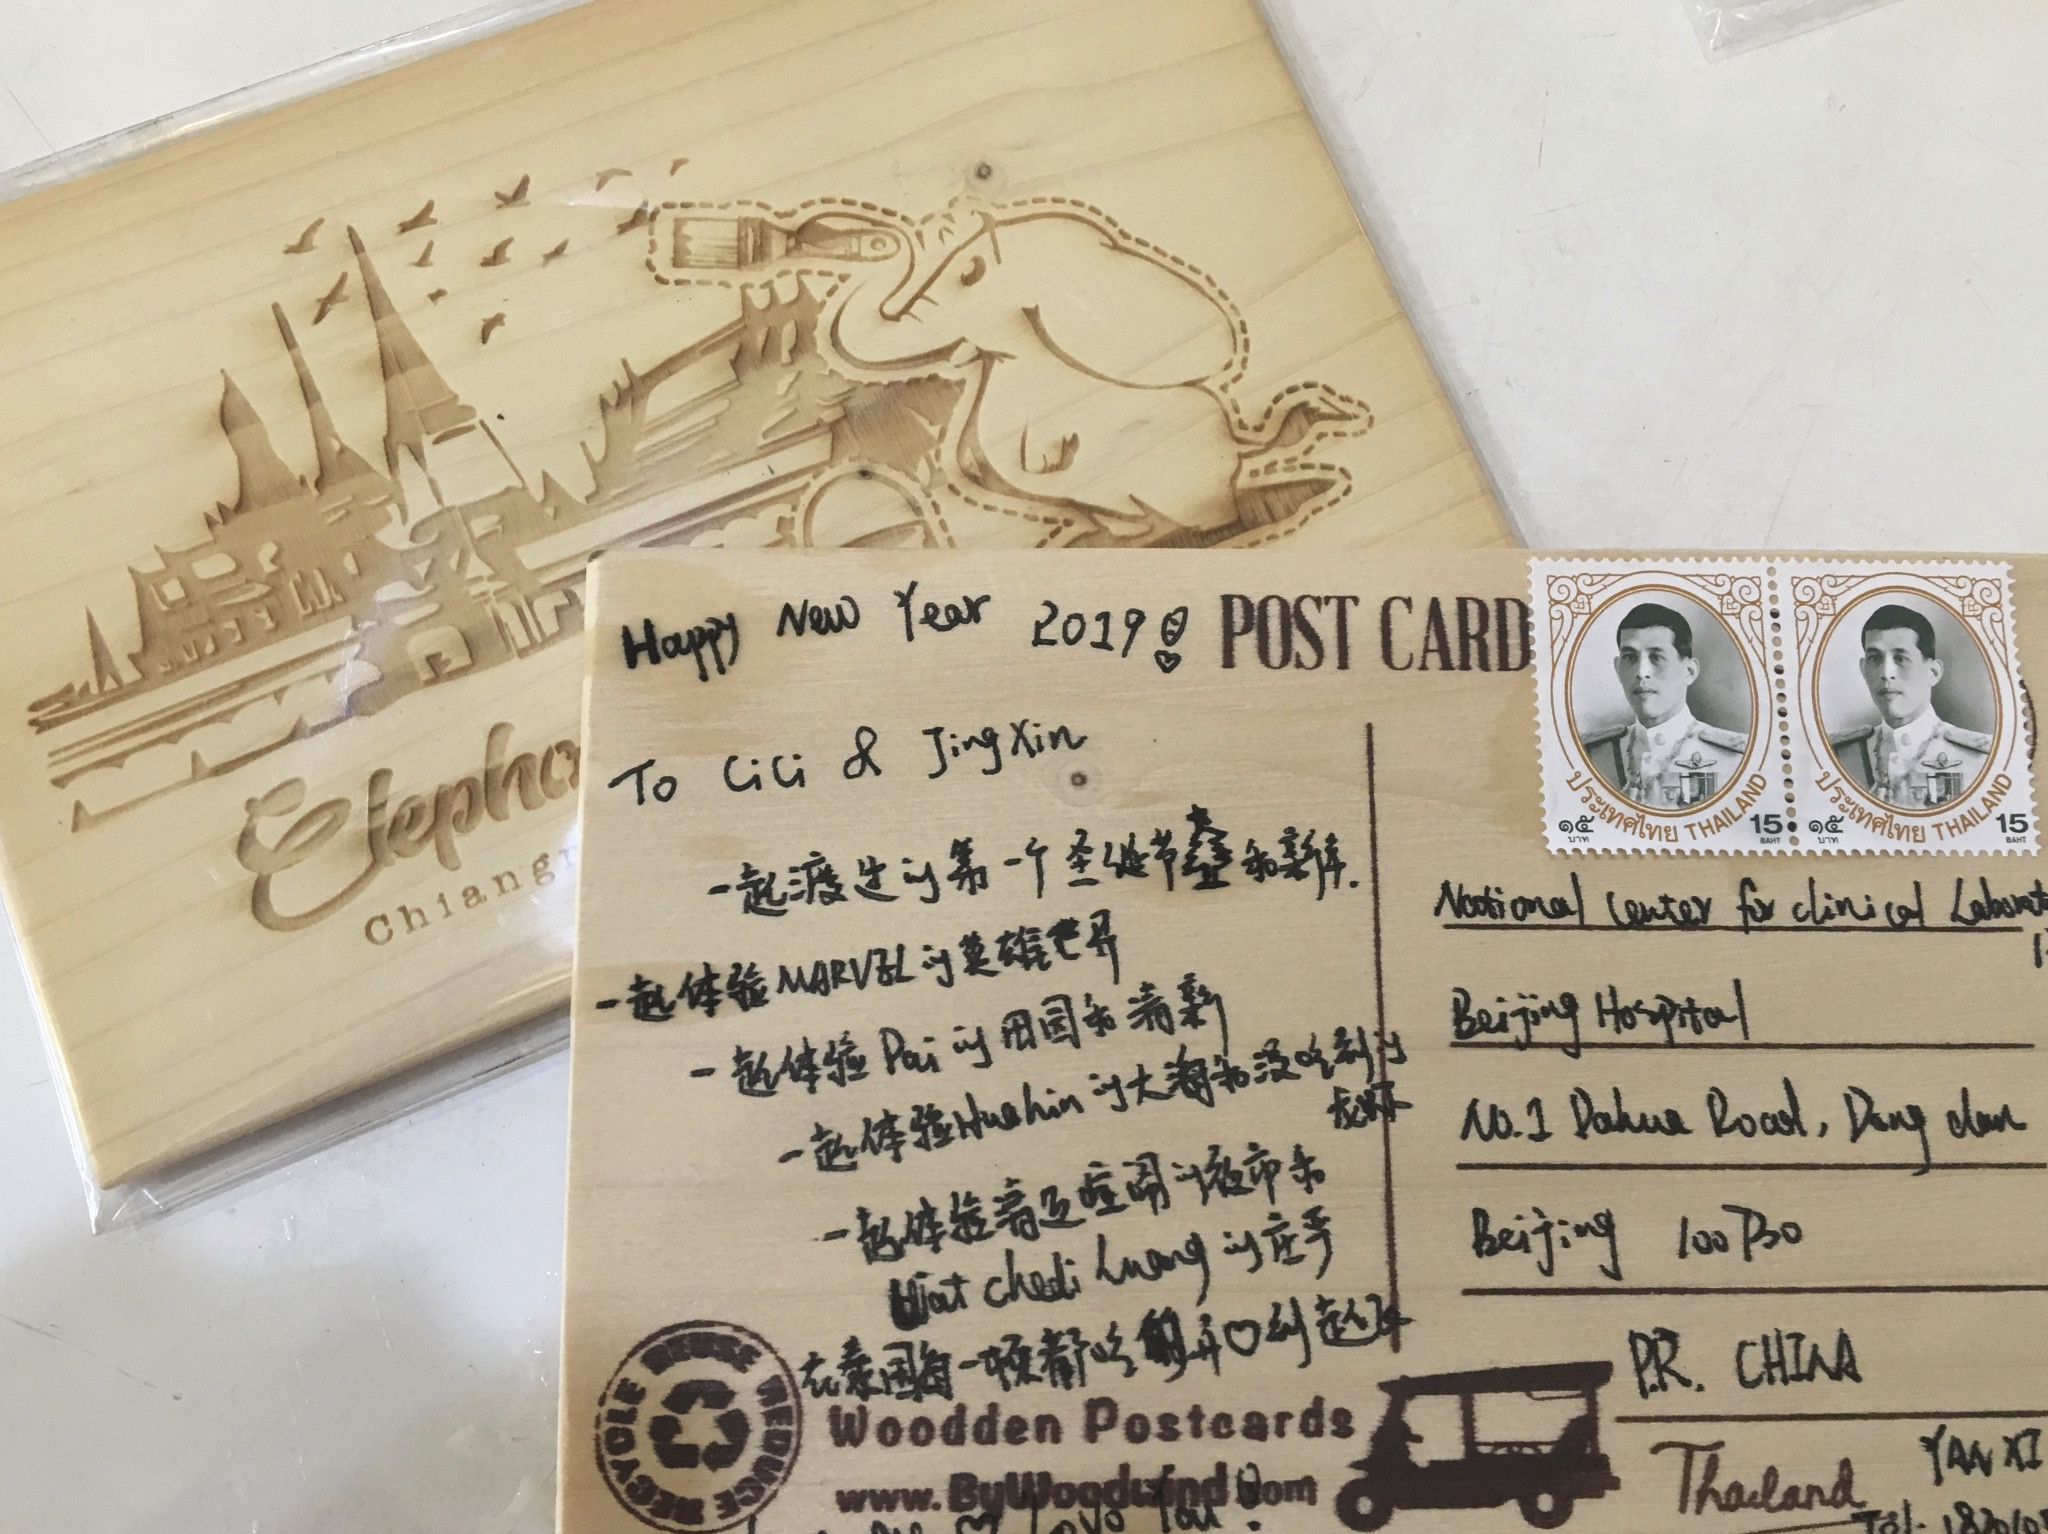 Chiangr
Happy New Year 2019!
POST CARD
To CiCi & JingXin
一起渡过的第一个圣诞节和新年.
一起体验MARVEL的英雄世界
一起体验Pai的田园和清新
一起体验Huahin的大海和没吃到的
龙虾
一起体验清迈喧闹的夜市和
Wat Chedi Luang的庄严
在泰国每一顿都吃的开♡到起飞
ประเทศไทย THAILAND
๑๕ บาท 15 BAHT
ประเทศไทย THAILAND
๑๕ บาท 15 BAHT
National Center for Clinical
Beijing Hospital
No.1 Dahua Road, Dong dan
Beijing 100730
P.R. CHINA
REUSE REDUCE RECYCLE
Woodden Postcards
www.ByWoodwind.com
Thailand
YAN XI
Love You!